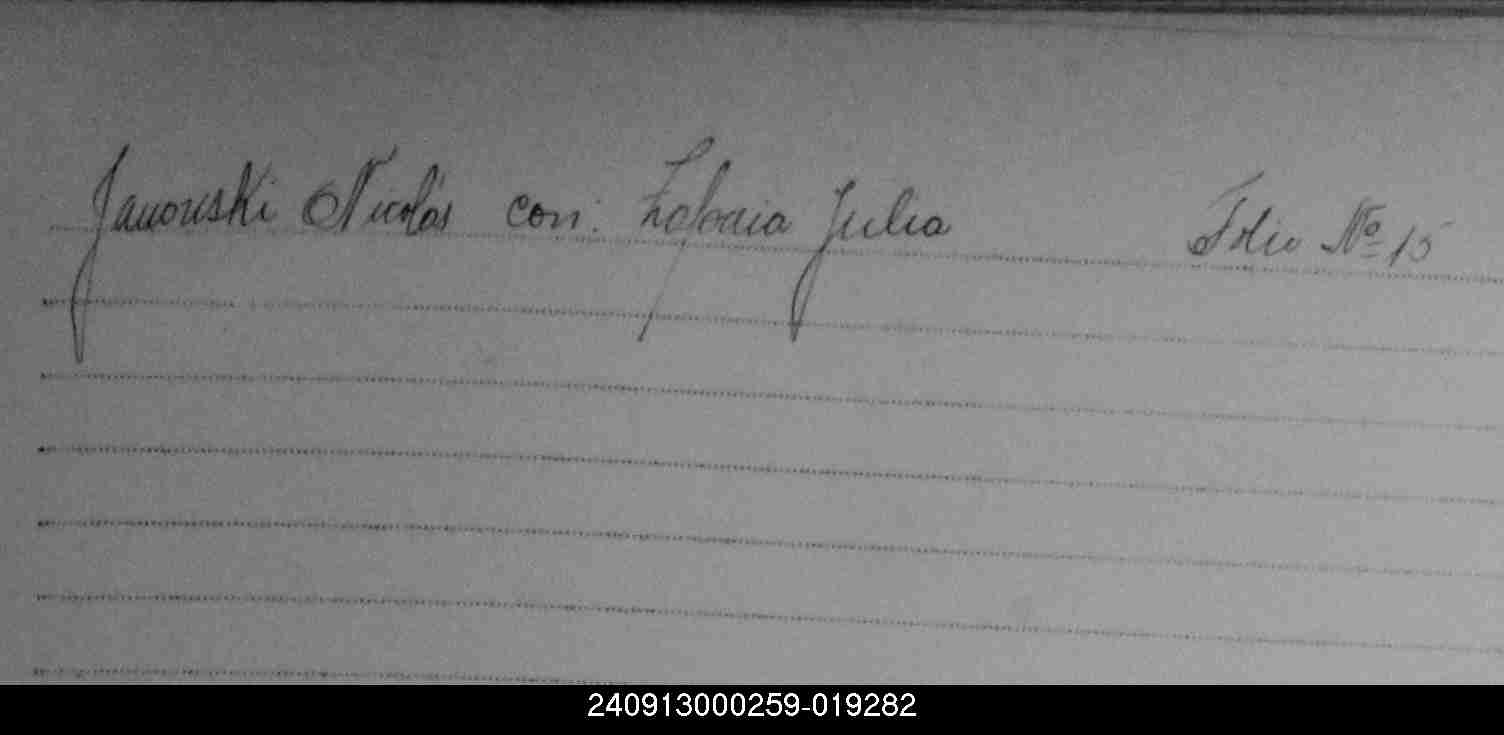 Janowski Nicolás con. Julia Folio Nº 15
240913000259-019282